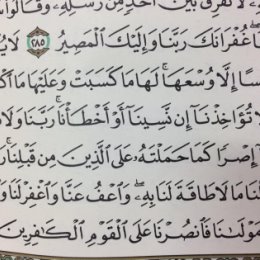 لَا نُفَرِّقُ بَيْنَ أَحَدٍ مِّن رُّسُلِهِۦ وَقَالُوا۟
غُفْرَانَكَ رَبَّنَا وَإِلَيْكَ ٱلْمَصِيرُ ٢٨٥ لَا
إِلَّا وُسْعَهَا لَهَا مَا كَسَبَتْ وَعَلَيْهَا مَا
تُؤَاخِذْنَآ إِن نَّسِينَآ أَوْ أَخْطَأْنَا رَبَّنَا وَلَا
إِصْرًا كَمَا حَمَلْتَهُۥ عَلَى ٱلَّذِينَ مِن قَبْلِنَا
مَا لَا طَاقَةَ لَنَا بِهِۦ وَٱعْفُ عَنَّا وَٱغْفِرْ لَنَا
مَوْلَىٰنَا فَٱنصُرْنَا عَلَى ٱلْقَوْمِ ٱلْكَٰفِرِينَ